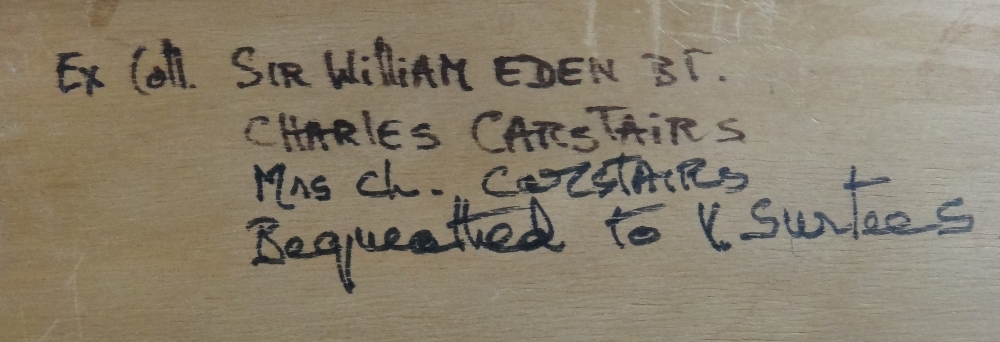 Ex Coll. SIR WilliAM EDEN BT.
CHARlES CARSTAiRS
Mrs Ch. CARSTAiRS
Bequeathed to V. Surtees